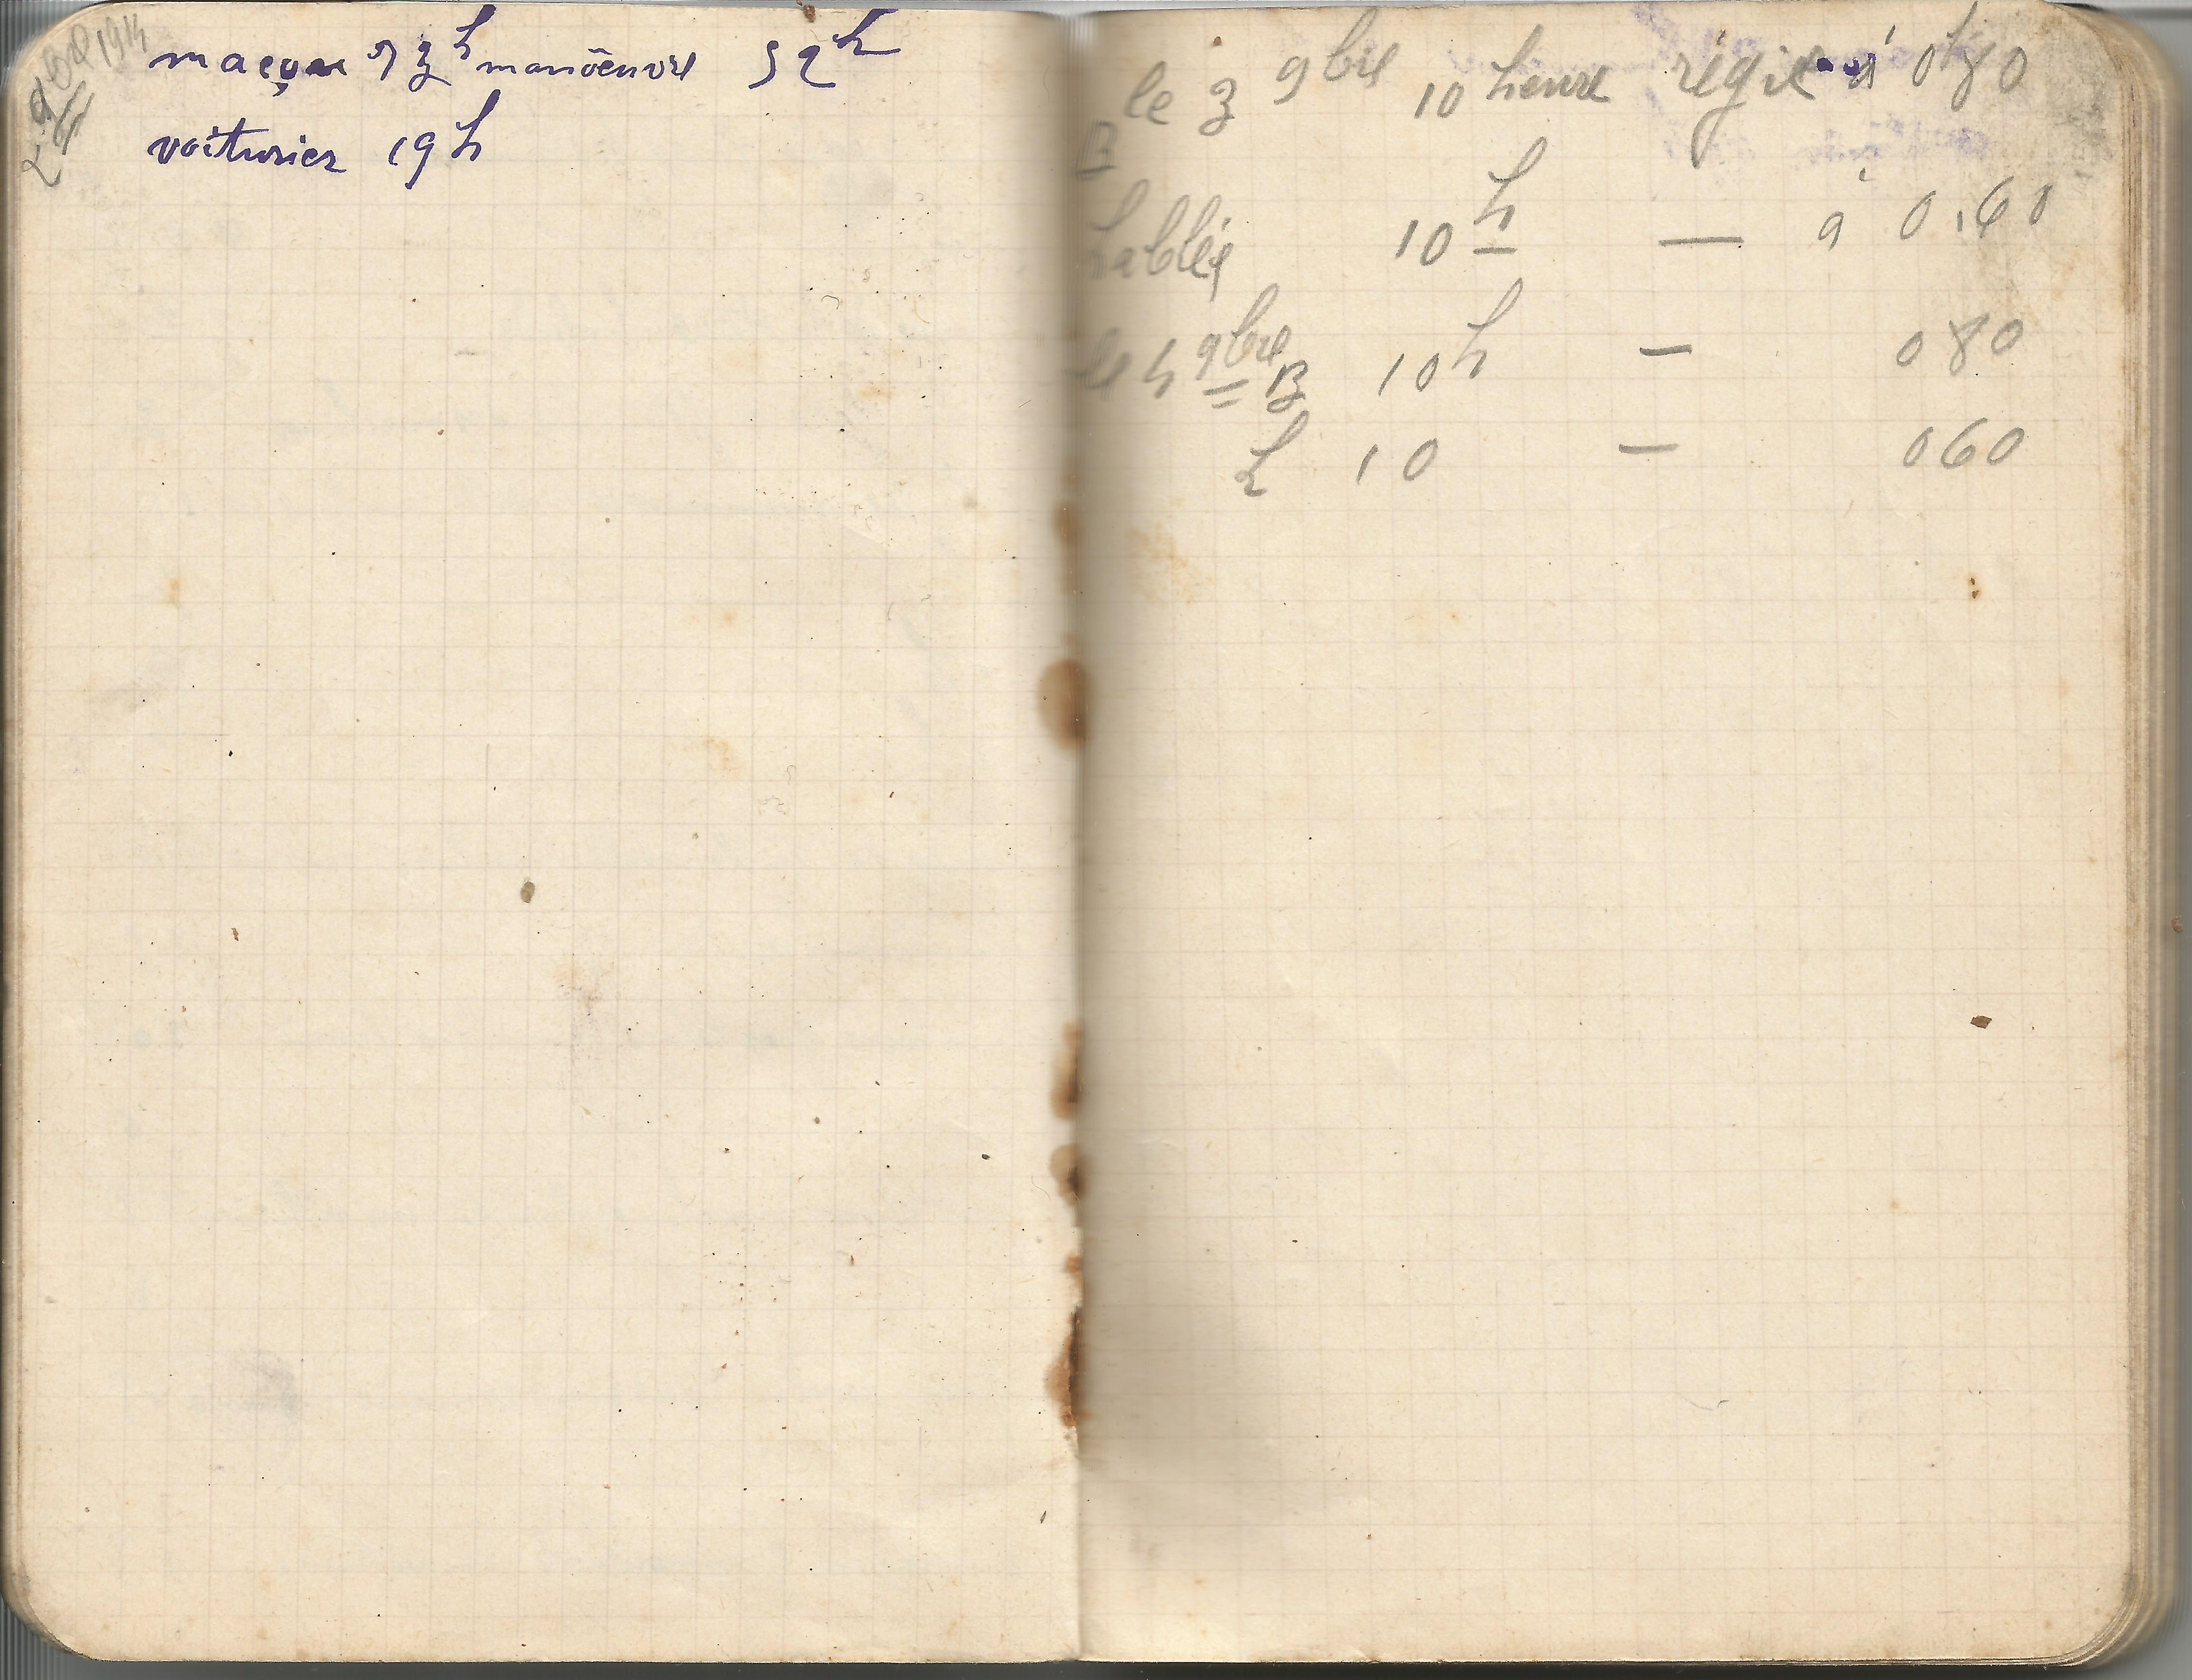 2 9bre 1914
maçon 53h manoeuvre 52h
voiturier 19h
le 3 9bre 10 heure régie à 0f80
B
10h — à 0.60
le 4 9bre B 10h — 080
L 10 — 060